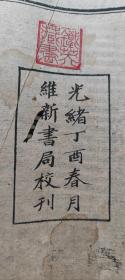 光緒丁酉春月
維新書局校刊